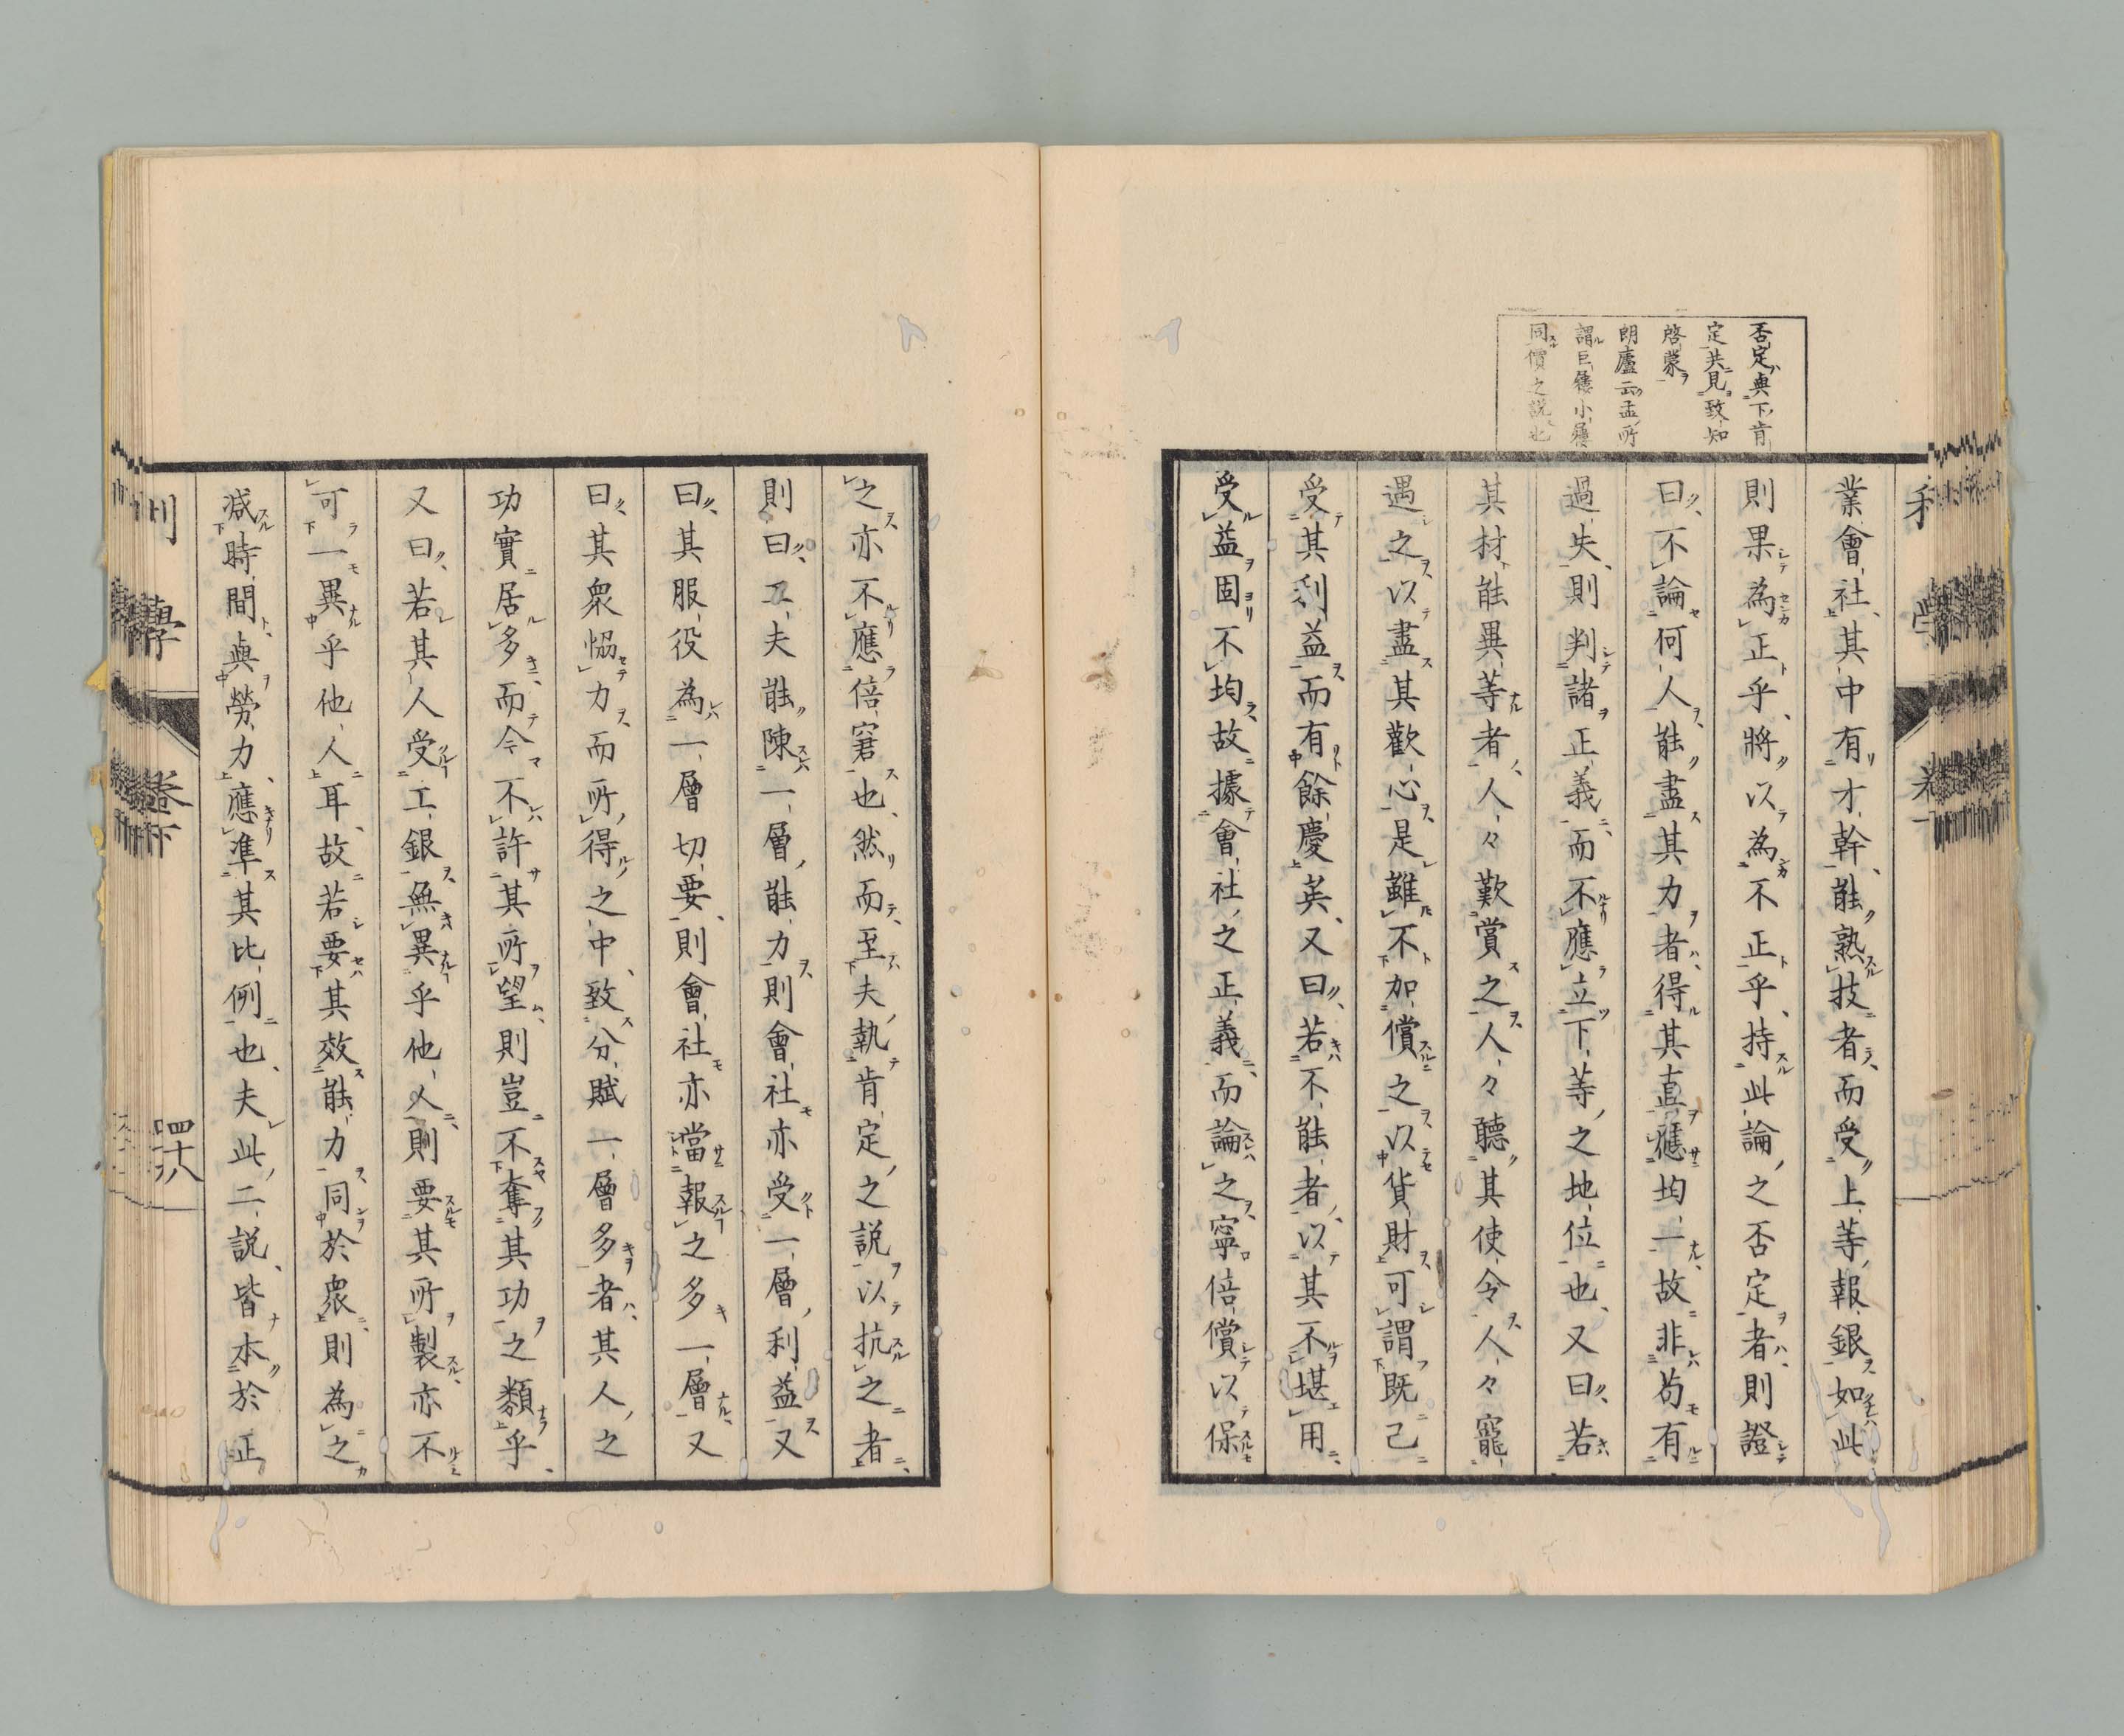 否定與下肯
定共見致知
啓蒙
朗廬云孟所
謂巨屨小屨
同價之說也
業會社其中有才幹能熟技者而受上等報銀如此
則果為正乎將以為不正乎持此論之否定者則證
曰不論何人能盡其力者得其直應均一故非茍有
過失則判諸正義而不應立下等之地位也又曰若
其材能異等者人々歎賞之人々聽其使令人々寵
遇之以盡其歡心是雖不加償之以貨財可謂既已
受其利益而有餘慶矣又曰若不能者以其不堪用
受益固不均故據會社之正義而論之寧倍償以保
之亦不應倍窘也然而至夫執肯定之說以抗之者
則曰工夫能陳一層能力則會社亦受一層利益又
曰其服役為一層切要則會社亦當報之多一層又
曰其衆恊力而所得之中致分賦一層多者其人之
功實居多而今不許其所望則豈不奪其功之類乎
又曰若其人受工銀無異乎他人則要其所製亦不
可一異乎他人耳故若要其效能力同於衆則為之
減時間與勞力應準其比例也夫此二說皆本於正
利學
卷下
四十八